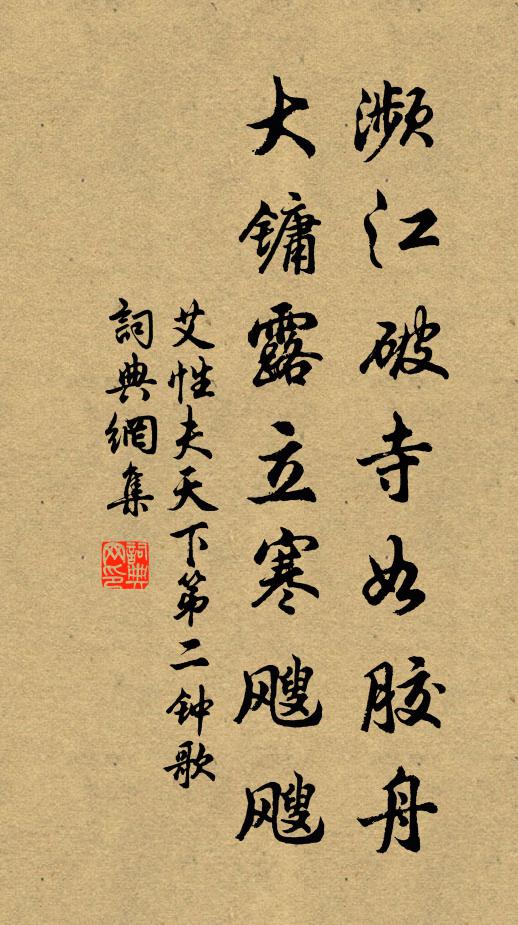 瀕江破寺如胶舟
大镛露立寒飕飕
艾性夫天下第二钟歌
詞典網集
詞典网印